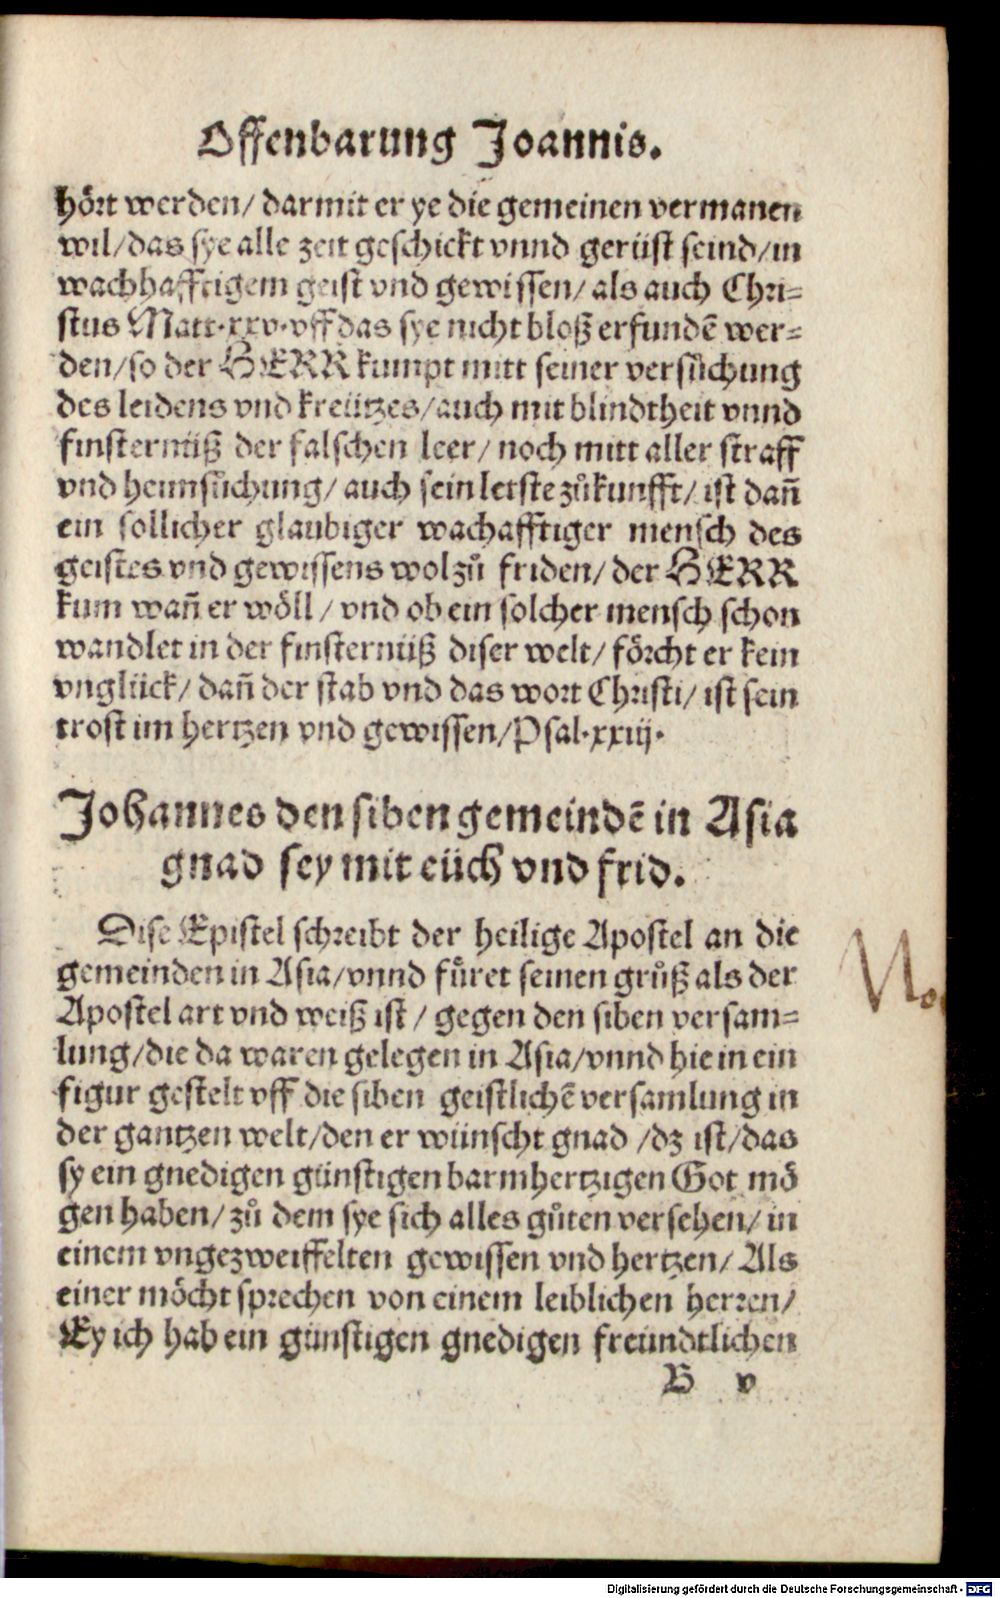 Offenbarung Joannis.
hört werden/ darmit er ye die gemeinen vermanen
wil/das sye alle zeit geschickt vnnd gerüst seind/in
wachhafftigem geist vnd gewissen/ als auch Chri⸗
stus Matt·xxv·vff das sye nicht bloß erfundē wer⸗
den/so der HERR kumpt mitt seiner versůchung
des leidens vnd kreützes/auch mit blindtheit vnnd
finsternüß der falschen leer/ noch mitt aller straff
vnd heimsůchung/ auch sein letste zůkunfft/ ist dañ
ein sollicher glaubiger wachafftiger mensch des
geistes vnd gewissens wol zů friden/ der HERR
kum wañ er wöll/ vnd ob ein solcher mensch schon
wandlet in der finsternüß diser welt/ förcht er kein
vnglück/ dañ der stab vnd das wort Christi/ ist sein
trost im hertzen vnd gewissen/Psal·xxiij·
Johannes den siben gemeindē in Asia
gnad sey mit eüch vnd frid.
Dise Epistel schreibt der heilige Apostel an die
gemeinden in Asia/vnnd fůret seinen grůß als der
Apostel art vnd weiß ist/ gegen den siben versam⸗
lung/die da waren gelegen in Asia/vnnd hie in ein
figur gestelt vff die siben geistlichē versamlung in
der gantzen welt/den er wünscht gnad /dz ist/das
sy ein gnedigen günstigen barmhertzigen Got mö
gen haben/ zů dem sye sich alles gůten versehen/ in
einem vngezweiffelten gewissen vnd hertzen/ Als
einer möcht sprechen von einem leiblichen herren/
Ey ich hab ein günstigen gnedigen freündtlichen
B v
No
Digitalisierung gefördert durch die Deutsche Forschungsgemeinschaft - DFG